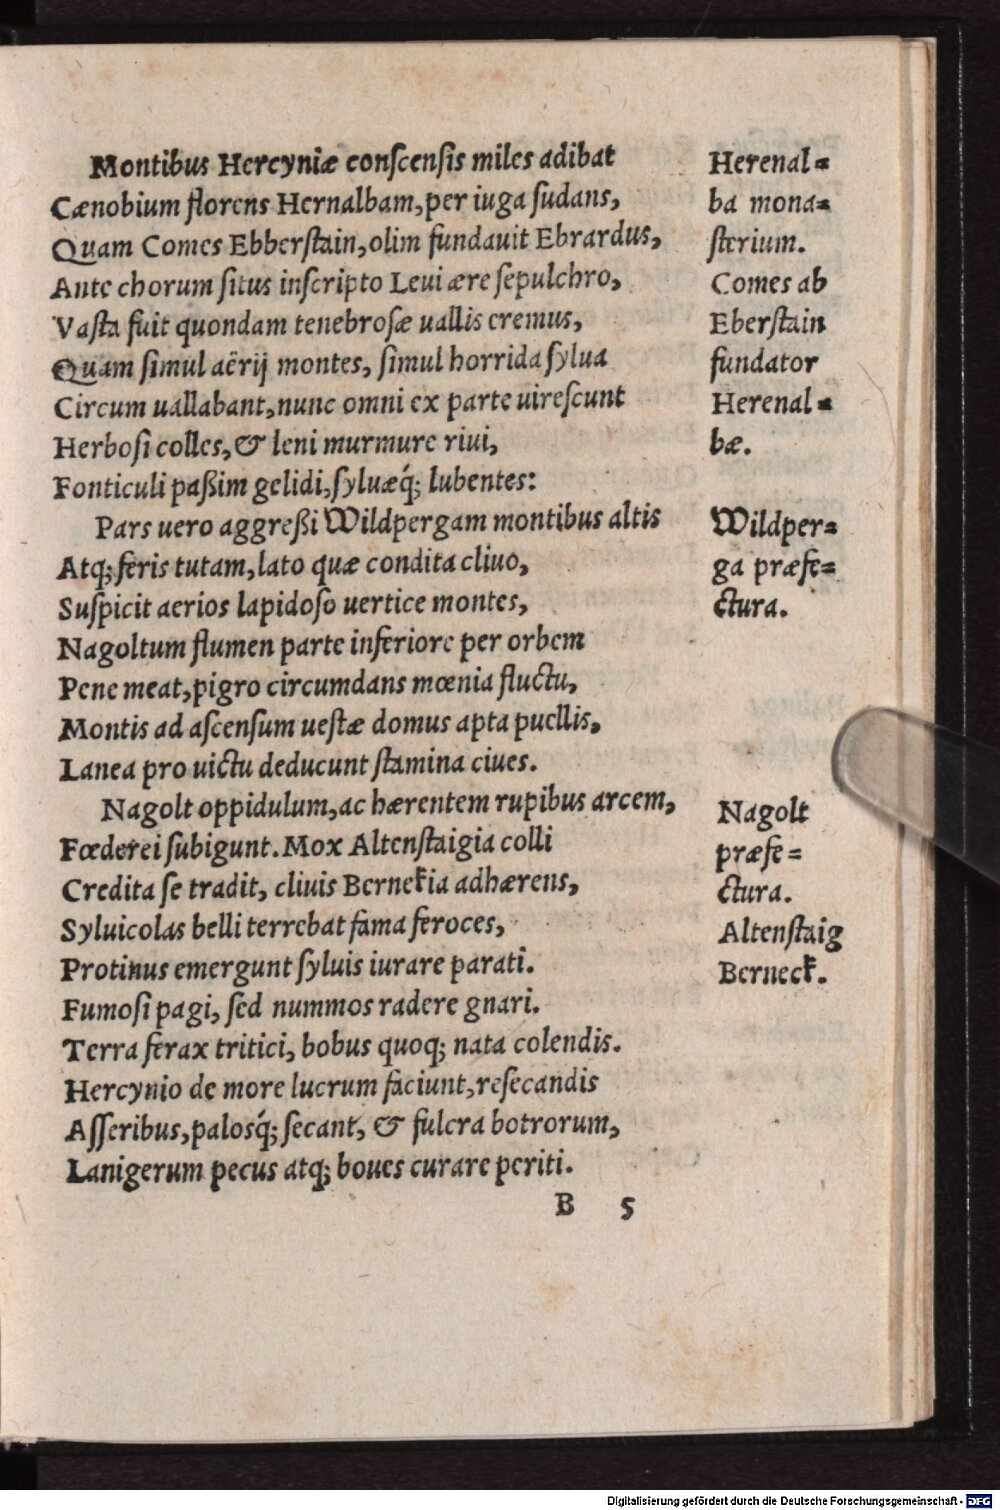 Montibus Hercyniæ conſcenſis miles adibat
Cænobium florens Hernalbam, per iuga ſudans,
Quam Comes Ebberſtain, olim fundauit Ebrardus,
Ante chorum ſitus inſcripto Leui ære ſepulchro,
Vaſta fuit quondam tenebroſæ uallis eremus,
Quam ſimul aërij montes, ſimul horrida ſylua
Circum uallabant, nunc omni ex parte uireſcunt
Herboſi colles, & leni murmure riui,
Fonticuli paßim gelidi, ſyluæq́; lubentes:
Pars uero aggreßi Wildpergam montibus altis
Atq; feris tutam, lato quæ condita cliuo,
Suſpicit aerios lapidoſo uertice montes,
Nagoltum flumen parte inferiore per orbem
Pene meat, pigro circumdans mœnia fluctu,
Montis ad aſcenſum ueſtæ domus apta puellis,
Lanea pro uictu deducunt ſtamina ciues.
Nagolt oppidulum, ac hærentem rupibus arcem,
Fœderei ſubigunt. Mox Altenſtaigia colli
Credita ſe tradit, cliuis Bernekia adhærens,
Syluicolas belli terrebat fama feroces,
Protinus emergunt ſyluis iurare parati.
Fumoſi pagi, ſed nummos radere gnari.
Terra ferax tritici, bobus quoq; nata colendis.
Hercynio de more lucrum faciunt, reſecandis
Aſſeribus, palosq́; ſecant, & fulcra botrorum,
Lanigerum pecus atq; boues curare periti.
B 5
Herenal=
ba mona=
ſterium.
Comes ab
Eberſtain
fundator
Herenal=
bæ.
Wildper=
ga præfe=
ctura.
Nagolt
præfe=
ctura.
Altenſtaig
Berneck.
Digitalisierung gefördert durch die Deutsche Forschungsgemeinschaft - DFG